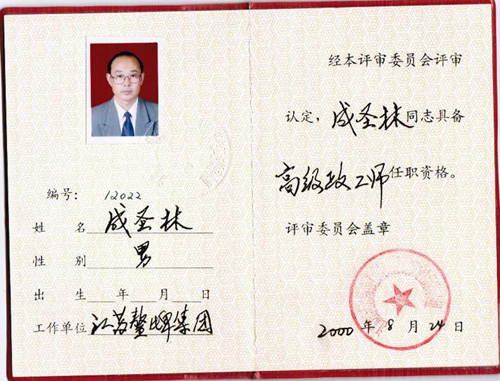 编号: 12022
姓 名 成圣林
性 别 男
出 生 年 月 日
工作单位 江苏鳌牌集团
经本评审委员会评审
认定, 成圣林 同志具备
高级政工师 任职资格。
评审委员会盖章
2000 年 8 月 24 日